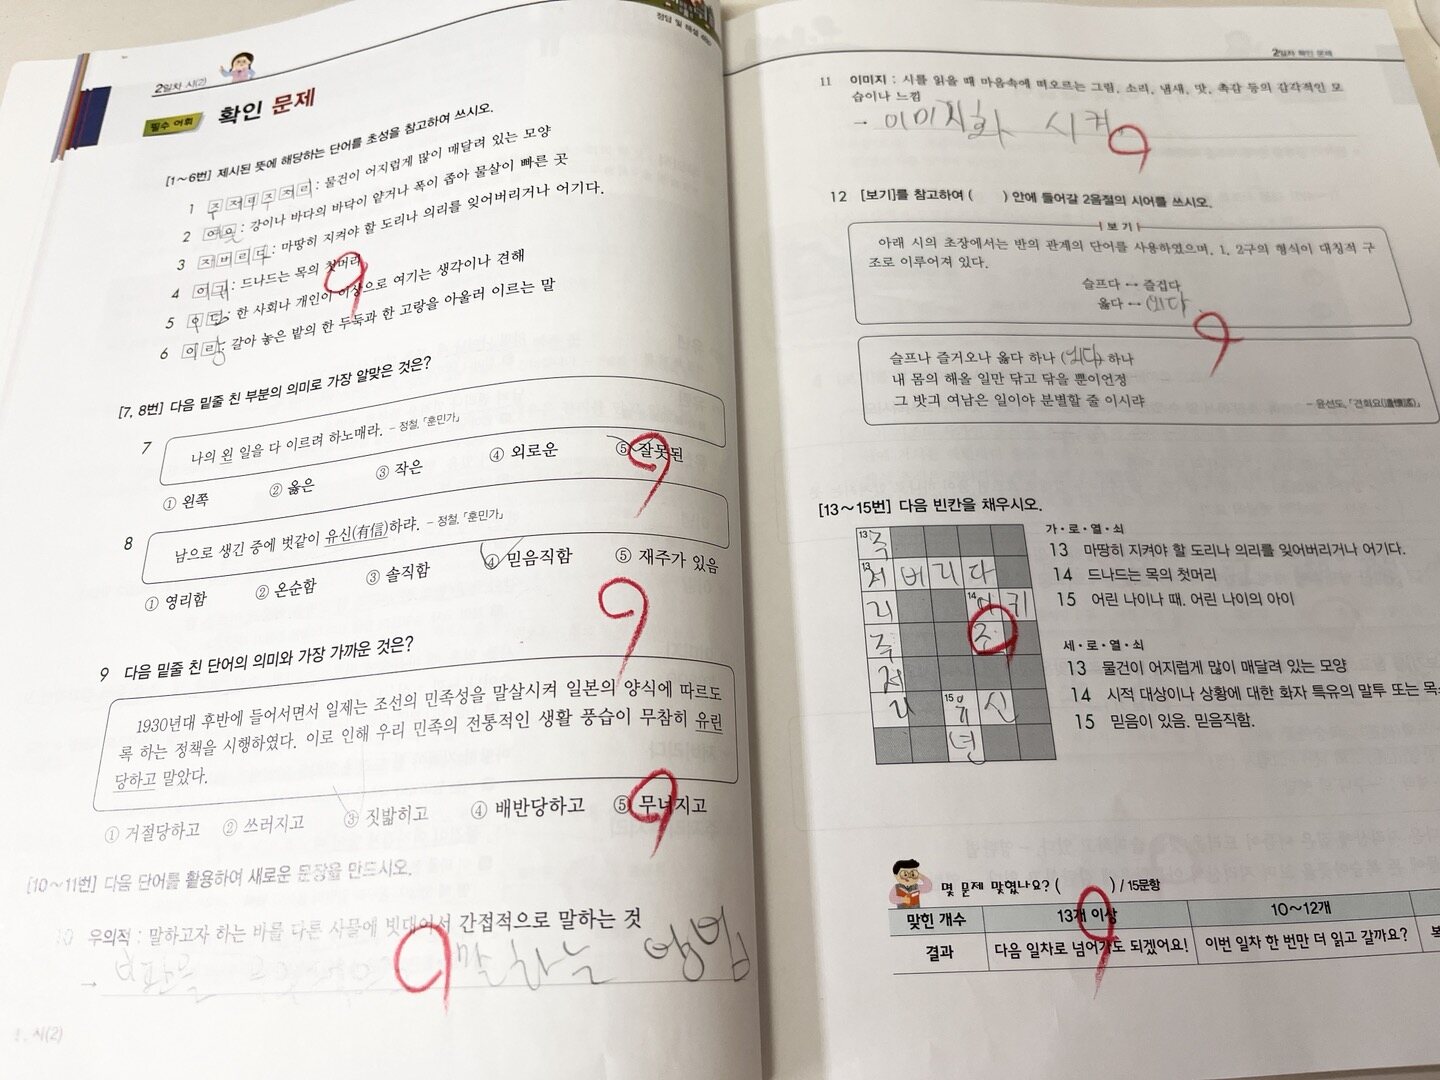 2일차 시(2)
정답 및 해설
필수 어휘
확인 문제
[1～6번] 제시된 뜻에 해당하는 단어를 초성을 참고하여 쓰시오.
1 주저리주저리 : 물건이 어지럽게 많이 매달려 있는 모양
2 여울 : 강이나 바다의 바닥이 얕거나 폭이 좁아 물살이 빠른 곳
3 저버리다 : 마땅히 지켜야 할 도리나 의리를 잊어버리거나 어기다.
4 어귀 : 드나드는 목의 첫머리
5 : 한 사회나 개인이 이상으로 여기는 생각이나 견해
6 이랑 : 갈아 놓은 밭의 한 두둑과 한 고랑을 아울러 이르는 말
[7, 8번] 다음 밑줄 친 부분의 의미로 가장 알맞은 것은?
7 나의 왼 일을 다 이르려 하노매라. – 정철, 「훈민가」
① 왼쪽 ② 옳은 ③ 작은 ④ 외로운 ⑤ 잘못된
8 남으로 생긴 중에 벗같이 유신(有信)하랴. – 정철, 「훈민가」
① 영리함 ② 온순함 ③ 솔직함 ④ 믿음직함 ⑤ 재주가 있음
9 다음 밑줄 친 단어의 의미와 가장 가까운 것은?
1930년대 후반에 들어서면서 일제는 조선의 민족성을 말살시켜 일본의 양식에 따르도
록 하는 정책을 시행하였다. 이로 인해 우리 민족의 전통적인 생활 풍습이 무참히 유린
당하고 말았다.
① 거절당하고 ② 쓰러지고 ③ 짓밟히고 ④ 배반당하고 ⑤ 무너지고
[10～11번] 다음 단어를 활용하여 새로운 문장을 만드시오.
10 우의적 : 말하고자 하는 바를 다른 사물에 빗대어서 간접적으로 말하는 것
→ 말하는
Ⅰ. 시(2)
2일차 확인 문제
11 이미지 : 시를 읽을 때 마음속에 떠오르는 그림, 소리, 냄새, 맛, 촉감 등의 감각적인 모
습이나 느낌
→ 이미지화 시켜.
12 [보기]를 참고하여 ( ) 안에 들어갈 2음절의 시어를 쓰시오.
보 기
아래 시의 초장에서는 반의 관계의 단어를 사용하였으며, 1, 2구의 형식이 대칭적 구
조로 이루어져 있다.
슬프다 ↔ 즐겁다
옳다 ↔ (외다
슬프나 즐거오나 옳다 하나 (외다) 하나
내 몸의 해올 일만 닦고 닦을 뿐이언정
그 밧긔 여남은 일이야 분별할 줄 이시랴
– 윤선도, 「견회요(遣懷謠)」
[13～15번] 다음 빈칸을 채우시오.
13 주
13 저 버 리 다
리 14 어 귀
주 조
저
리 15 유 신
년
가·로·열·쇠
13 마땅히 지켜야 할 도리나 의리를 잊어버리거나 어기다.
14 드나드는 목의 첫머리
15 어린 나이나 때. 어린 나이의 아이
세·로·열·쇠
13 물건이 어지럽게 많이 매달려 있는 모양
14 시적 대상이나 상황에 대한 화자 특유의 말투 또는
15 믿음이 있음. 믿음직함.
몇 문제 맞혔나요? ( ) / 15문항
맞힌 개수 13개 이상 10～12개
결과 다음 일차로 넘어가도 되겠어요! 이번 일차 한 번만 더 읽고 갈까요?